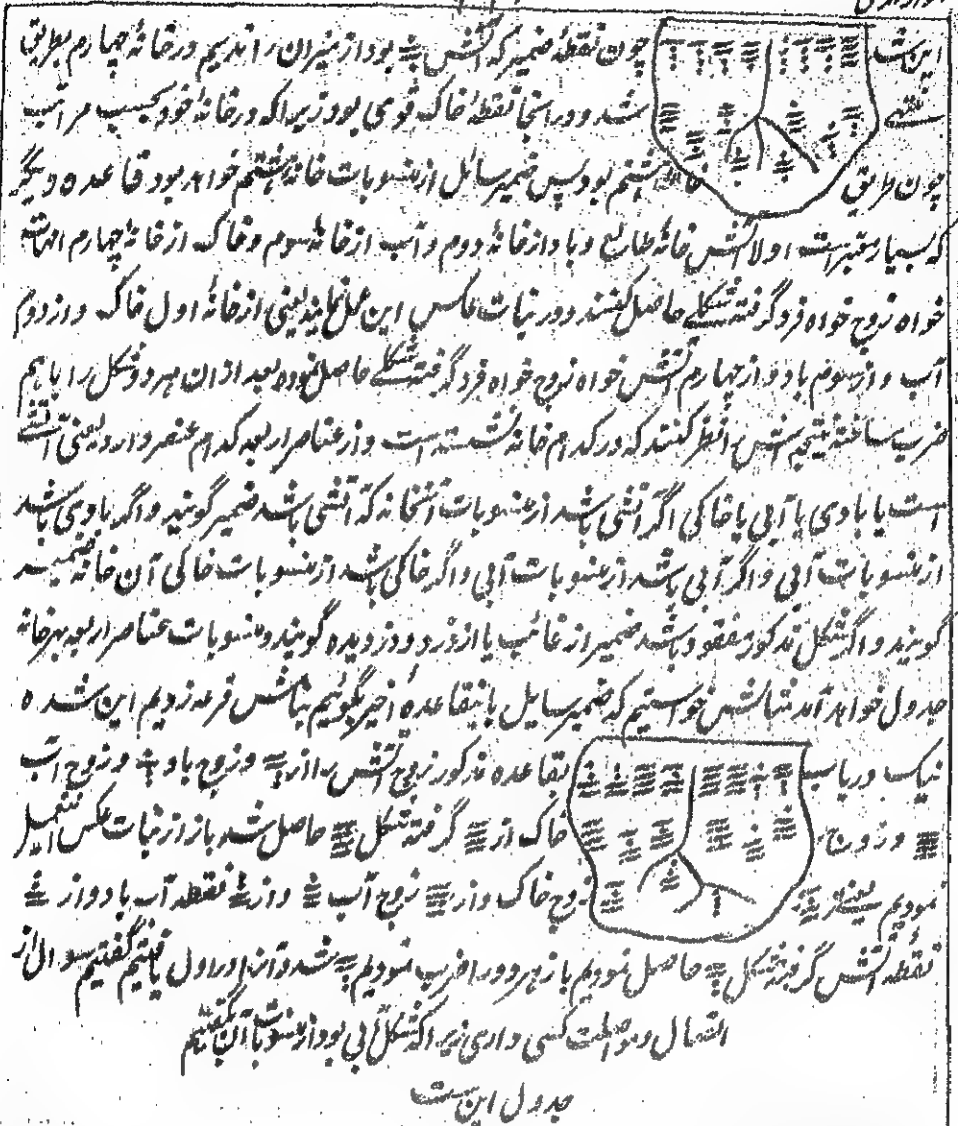 اینست چون نقطهٔ ضمیر که آتش بود از میزان راندیم در خانهٔ چهارم بطریق
شد و در انجا نقطهٔ خاک قوی بود زیرا که در خانهٔ خود بحسب مراتب
چون طریق خانهٔ هشتم بود پس ضمیر سائل از منسوبات خانهٔ هشتم خواهد بود قاعده دیگر
که بسیار معتبر است اولا آتش خانهٔ طالع و باد از خانهٔ دوم و آب از خانهٔ سوم و خاک از خانهٔ چهارم
خواه زوج خواه فرد گرفته شکلے حاصل کنند و در نبات عکس این عمل نمایند یعنی از خانهٔ اول خاک و از دوم
آب و از سوم باد و از چهارم آتش خواه زوج خواه فرد گرفته شکلے حاصل نموده بعد ازان هر دو شکل را باهم
ضرب ساخته نتیجه نظر کنند که در کدام خانه نشسته است و از عناصر اربعه کدام عنصر دارد یعنی آتشی
است یا بادی یا آبی یا خاکی اگر آتشی باشد از منسوبات آنخانه که آتشی باشد ضمیر گویند و اگر بادی باشد
از منسوبات آبی و اگر آبی باشد از منسوبات آبی و اگر خاکی باشد از منسوبات خاکی آن خانه ضمیر
گویند و اگر شکل مذکور مفقود باشد ضمیر از غائب یا از دزد و دزدیده گویند و منسوبات عناصر اربعه هر خانه
جدول خواهد آمد مثالش خواستیم که ضمیر سایل باینقاعدهٔ اخیر بگوئیم بنابرش قرعه زدیم این شده
نیک دریاب بقاعده مذکور زوج آتش را از و زوج باد و زوج آب
و زوج خاک از گرفته شکل حاصل شد باز از نبات عکس این عمل
نمودیم یعنے از زوج خاک و از زوج آب و از نقطه آب باد و از
نقطه آتش گرفته شکل حاصل نمودیم باز هر دو را ضرب نمودیم شد و آنرا در اول یافتیم گفتیم سوال از
اتصال و مواصلت کسی داری زیرا که شکل آبی بود از منسوبات آبی آن گفتیم
جدول این ست